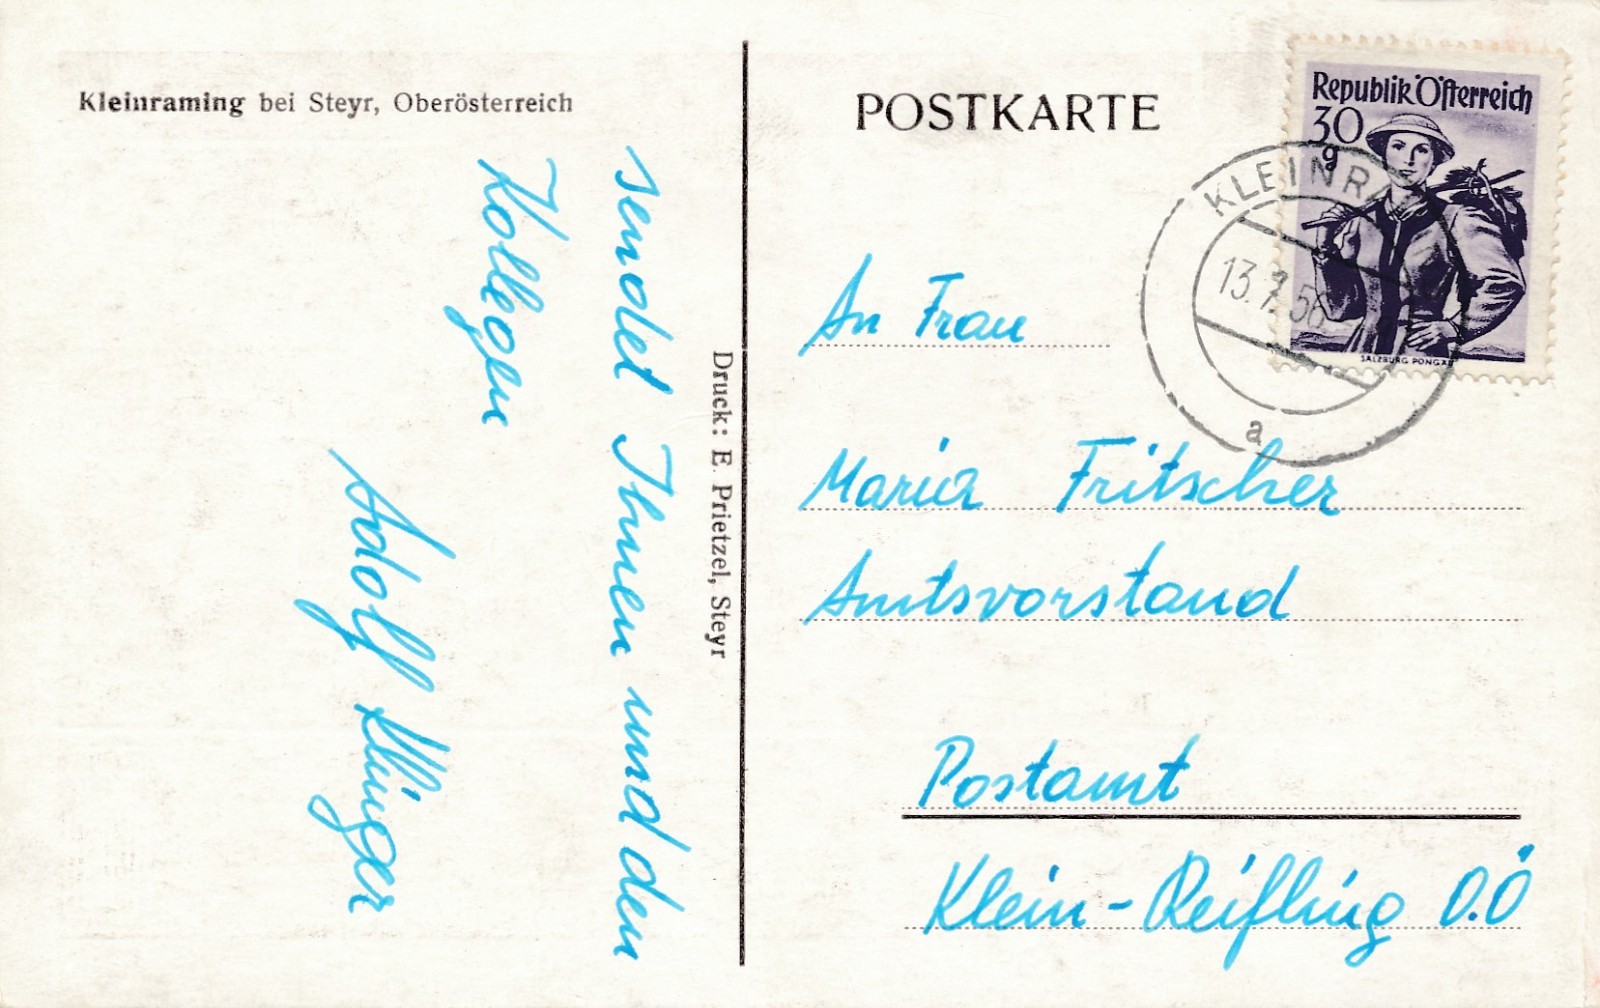 Kleinraming bei Steyr, Oberösterreich
sendet Ihnen und den
Kollegen
Adolf Klinger
Druck: E. Prietzel, Steyr
POSTKARTE
Republik Österreich
30
g
SALZBURG PONGAU
KLEINRA
13.7.56
a
An Frau
Maria Fritscher
Amtsvorstand
Postamt
Klein-Reifling O.Ö